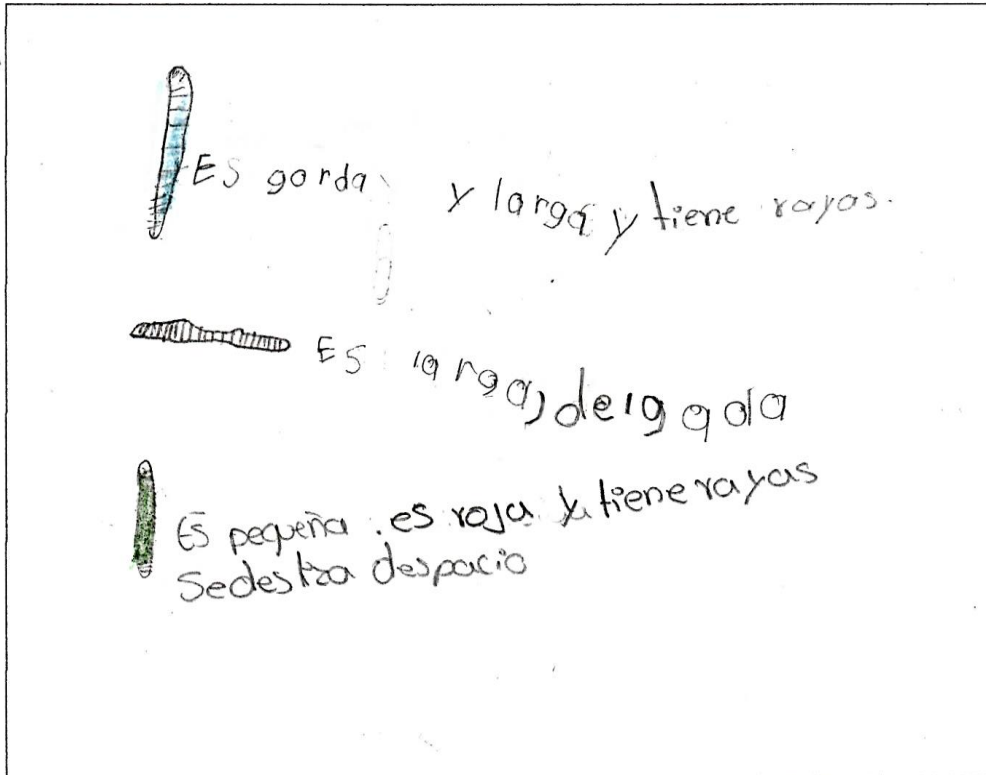 Es gorda y larga y tiene rayas.
Es larga, delgada
Es pequeña. es roja y tiene rayas
Sedestiza despacio